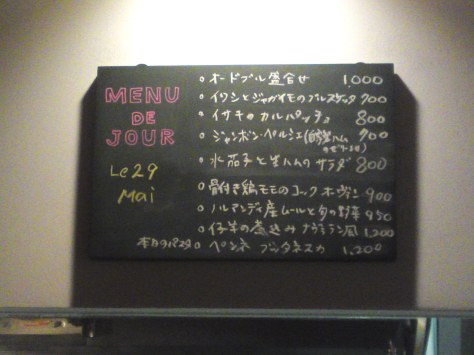 MENU
DE
JOUR
Le 29
Mai
オードブル盛合せ 1000
イワシとジャガイモのブルスケッタ 700
イサキのカルパッチョ 800
ジャンボン・ペルシェ(自家製ハム 900
水茄子と生ハムのサラダ 800
骨付き鶏モモのコックオーヴァン 900
ノルマンディ産ムールと旬の野菜 950
仔羊の煮込みナヴァラン風 1,200
本日のパスタ ペンネ プッタネスカ 1,200